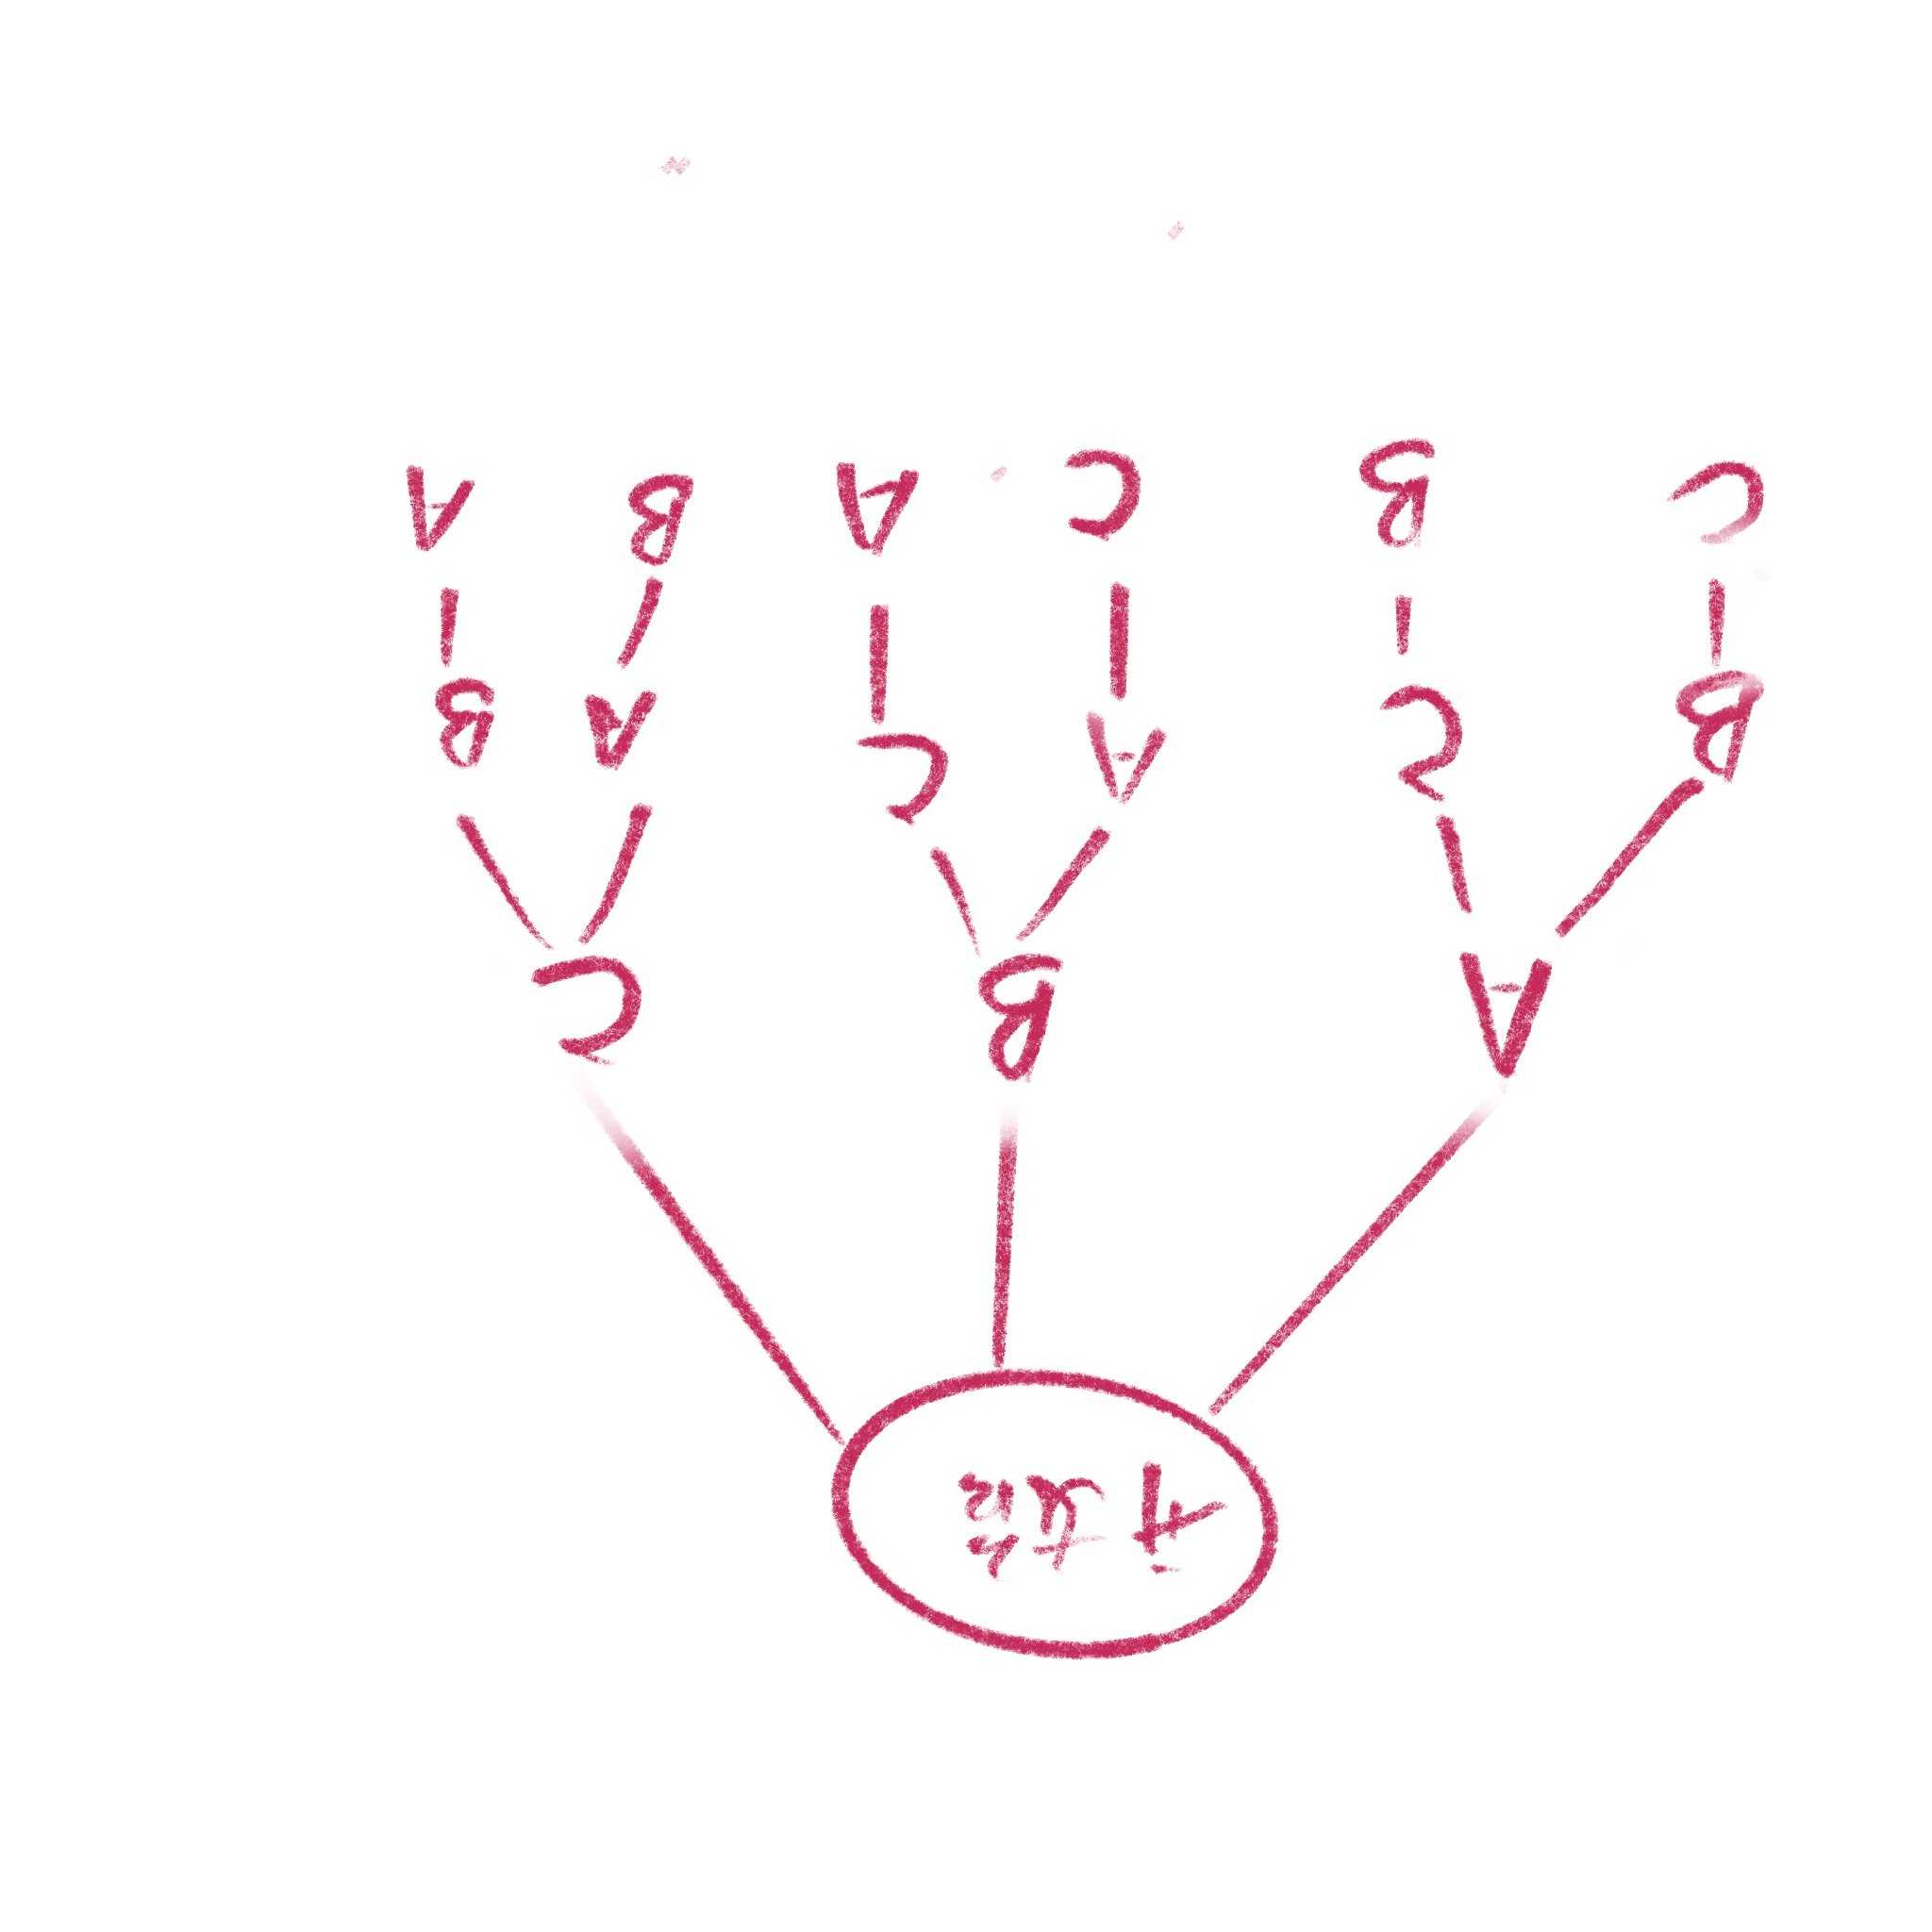 开始
A B C
B C A C A B
C B C A B A